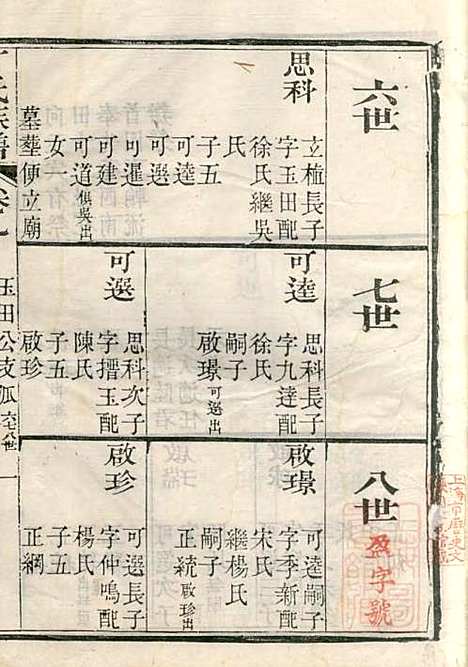 六世
思科
立植長子
字玉田配
徐氏繼吳
氏
子五
可逵
可選
可暹
可建
可道俱吳出
女一
墓葬便立廟
七世
可逵
思科長子
字九達配
徐氏
嗣子
啟璟可選出
可選
思科次子
字搢玉配
陳氏
子五
啟珍
八世
啟璟
可逵嗣子
字季新配
宋氏
繼楊氏
嗣子
正統啟珍出
啟珍
可選長子
字仲鳴配
楊氏
子五
正綱
氏族譜
卷之
玉田公支派六世至八世
一
盈字號